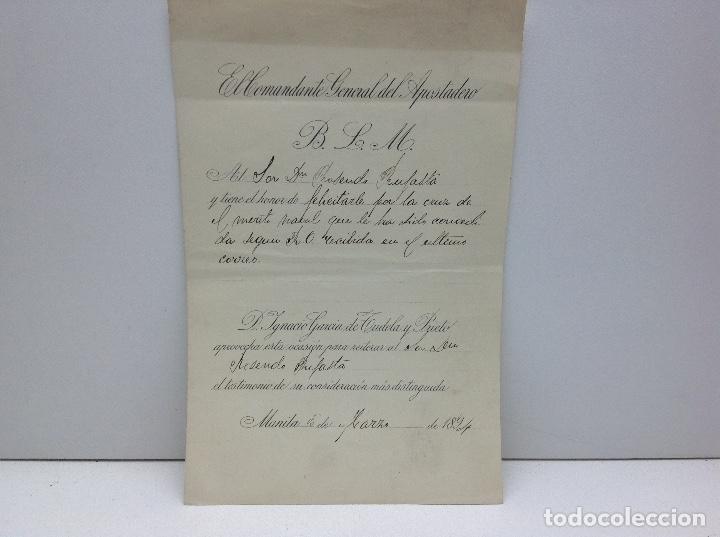 El Comandante General del Apostadero
B. L. M.
Al Sor Dn Rosendo Rufasta
y tiene el honor de felicitarle por la cruz de
el merito naval que le ha sido concedi
da segun R. O. recibida en el ultimo
correo.
D. Ignacio García de Tudela y Prieto
aprovecha esta ocasión para reiterar al Sor Dn
Rosendo Rufasta
el testimonio de su consideración más distinguida
Manila 6 de Marzo de 1894
todocoleccion.net